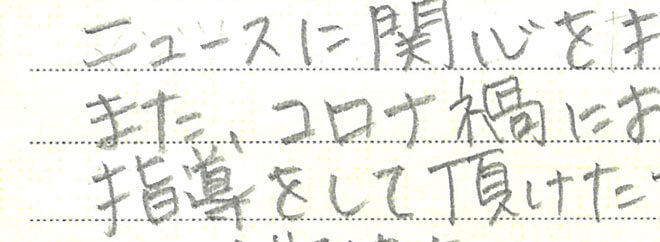 ニュースに関心をキ
また、コロナ禍にお
指導をして頂けた